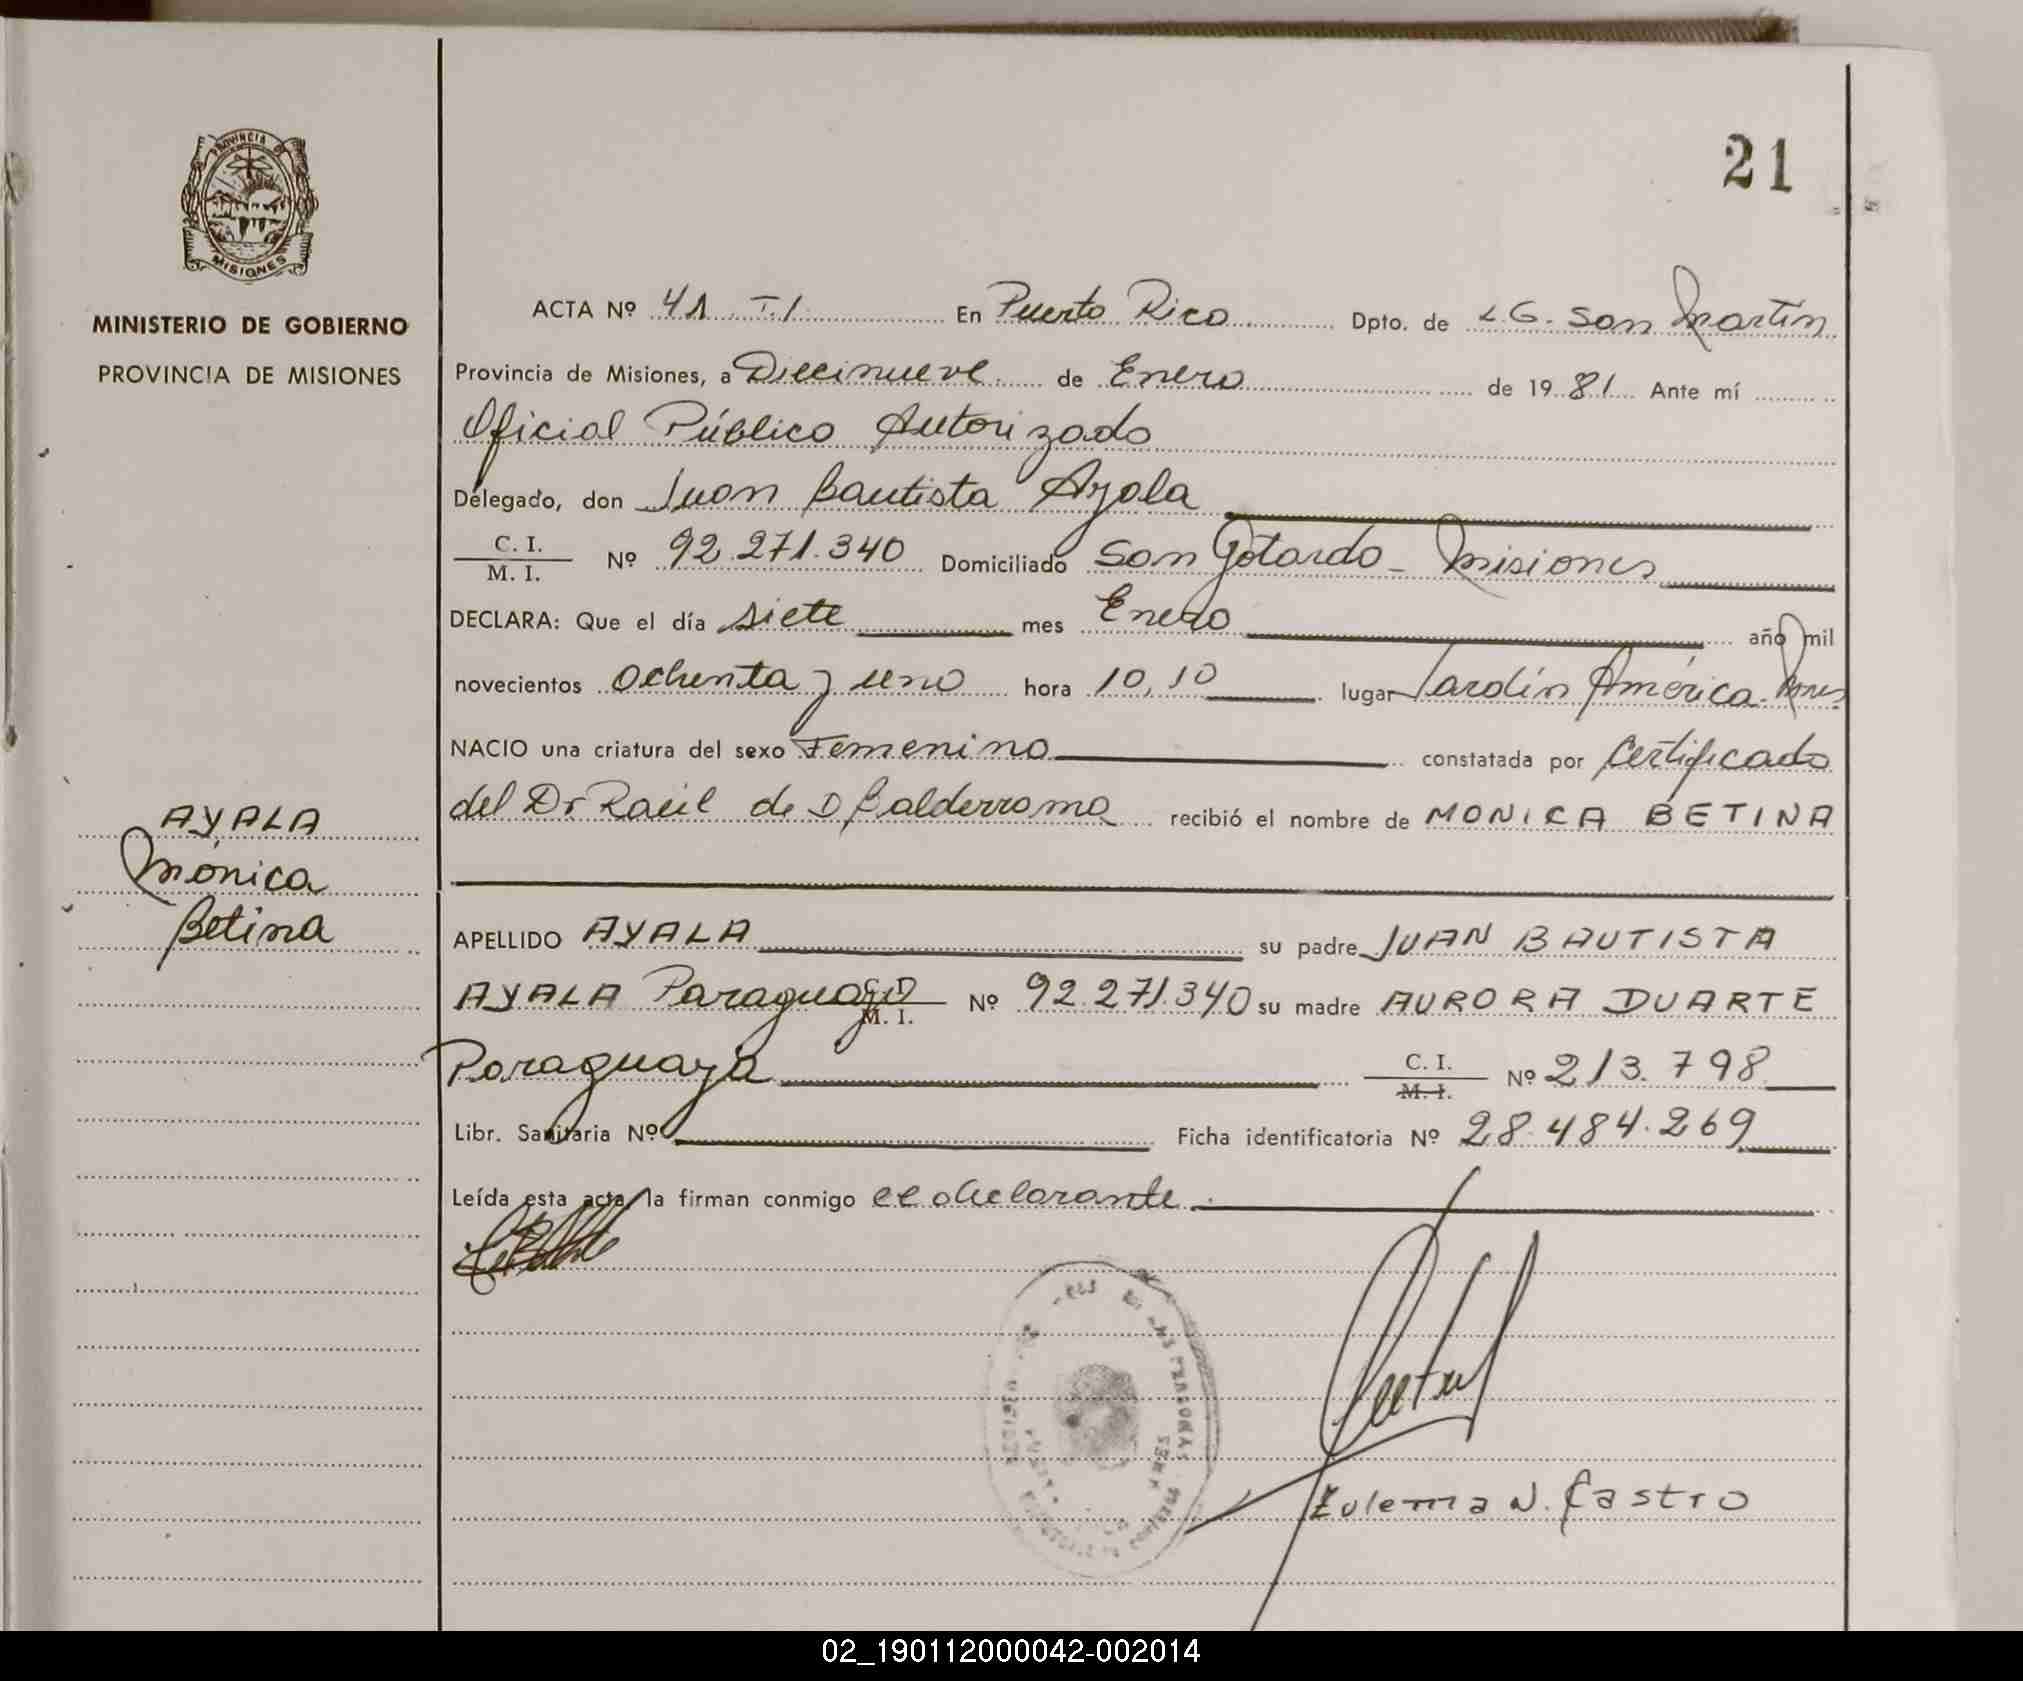 21
PROVINCIA DE
MISIONES
MINISTERIO DE GOBIERNO
PROVINCIA DE MISIONES
AYALA
Mónica
Betina
ACTA Nº 41 T.I En Puerto Rico Dpto. de L.G. San Martín
Provincia de Misiones, a Diecinueve de Enero de 1981 Ante mí
Oficial Público Autorizado
Delegado, don Juan Bautista Ayala
C. I.
M. I. Nº 92.271.340 Domiciliado San Gotardo - Misiones
DECLARA: Que el día siete mes Enero año mil
novecientos ochenta y uno hora 10,10 lugar Jardín América. Mnes
NACIO una criatura del sexo Femenino constatada por Certificado
del Dr Raúl de D Balderrama recibió el nombre de MONICA BETINA
APELLIDO AYALA su padre JUAN BAUTISTA
AYALA Paraguayo M. I. Nº 92.271.340 su madre AURORA DUARTE
Paraguaya C. I.
M. I. Nº 213.798
Libr. Sanitaria Nº Ficha identificatoria Nº 28.484.269
Leída esta acta, la firman conmigo el declarante.
Zulema N. Castro
02_190112000042-002014